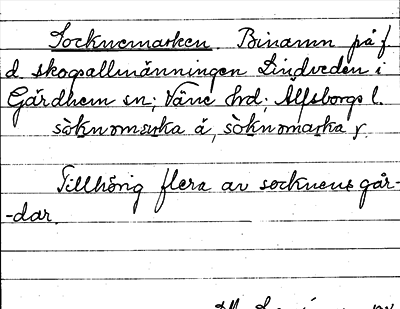 Socknemarken. Binamn på f.
d. skogsallmänningen Lindveden i
Gärdhem sn; Väne hrd; Älfsborgs l.
sòknomarka å, sòknomarka y.
Tillhörig flera av socknens går-
-dar.